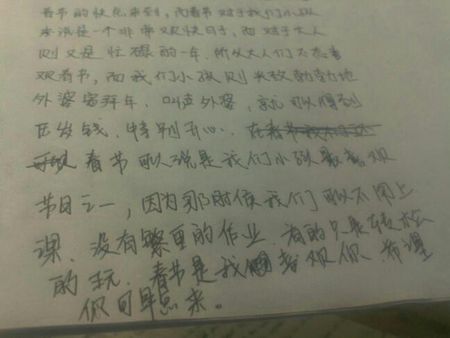 春节的快已来到，而春节对于我们小孩
来说是一个非常欢快日子，而对于大人
则又是忙碌的一年，所以大人们不太喜
欢春节，而我们小孩则来欢
外婆家拜年，叫声外婆，就可以得到
压岁钱，特别开心，在春节我们还
可以 春节可以说是我们小孩最喜欢
节日之一，因为那时候我们可以不用上
课，没有繁重的作业，有的只是轻松
的玩，春节是我们喜欢你，希望
你可早点来。